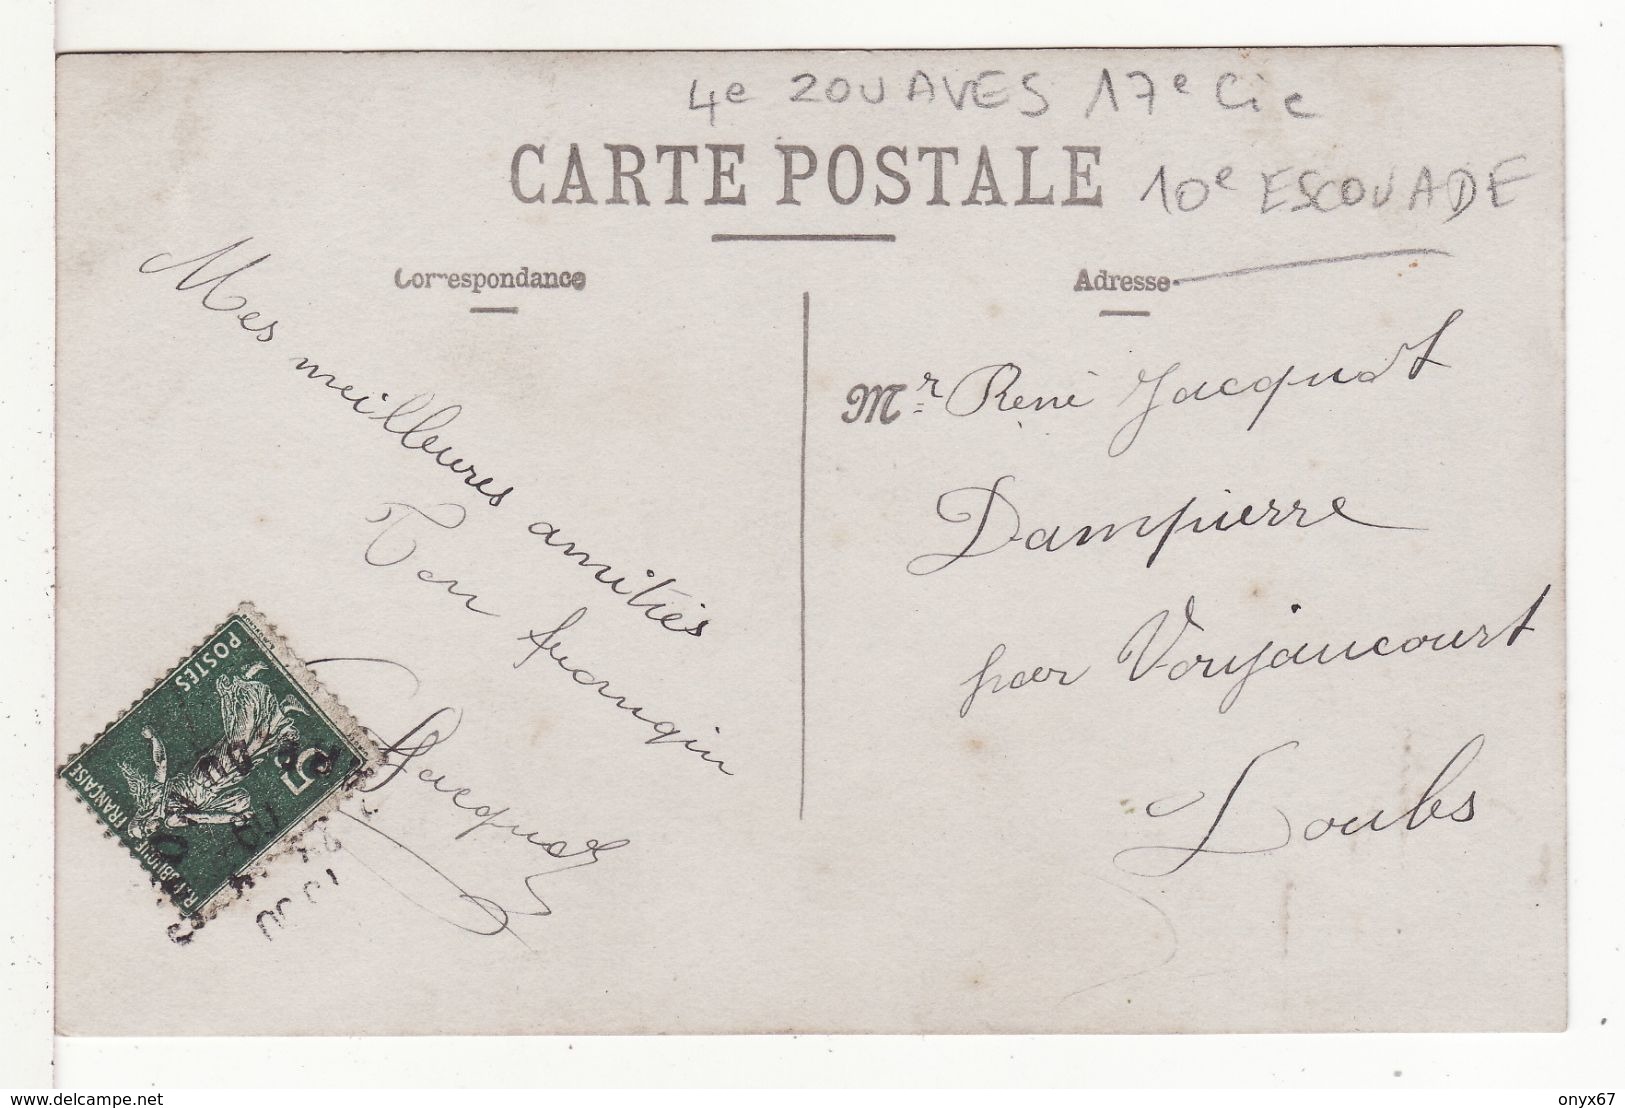 4e ZOUAVES 17e Cie
CARTE POSTALE
10e ESCOUADE
Correspondance
Adresse
Mes meilleures amitiés
Ton frangin
Jacquot
Mr René Jacquot
Dampierre
par Voujaucourt
Doubs
POSTES
5
REPUBLIQUE FRANÇAISE
www.delcampe.net
onyx67